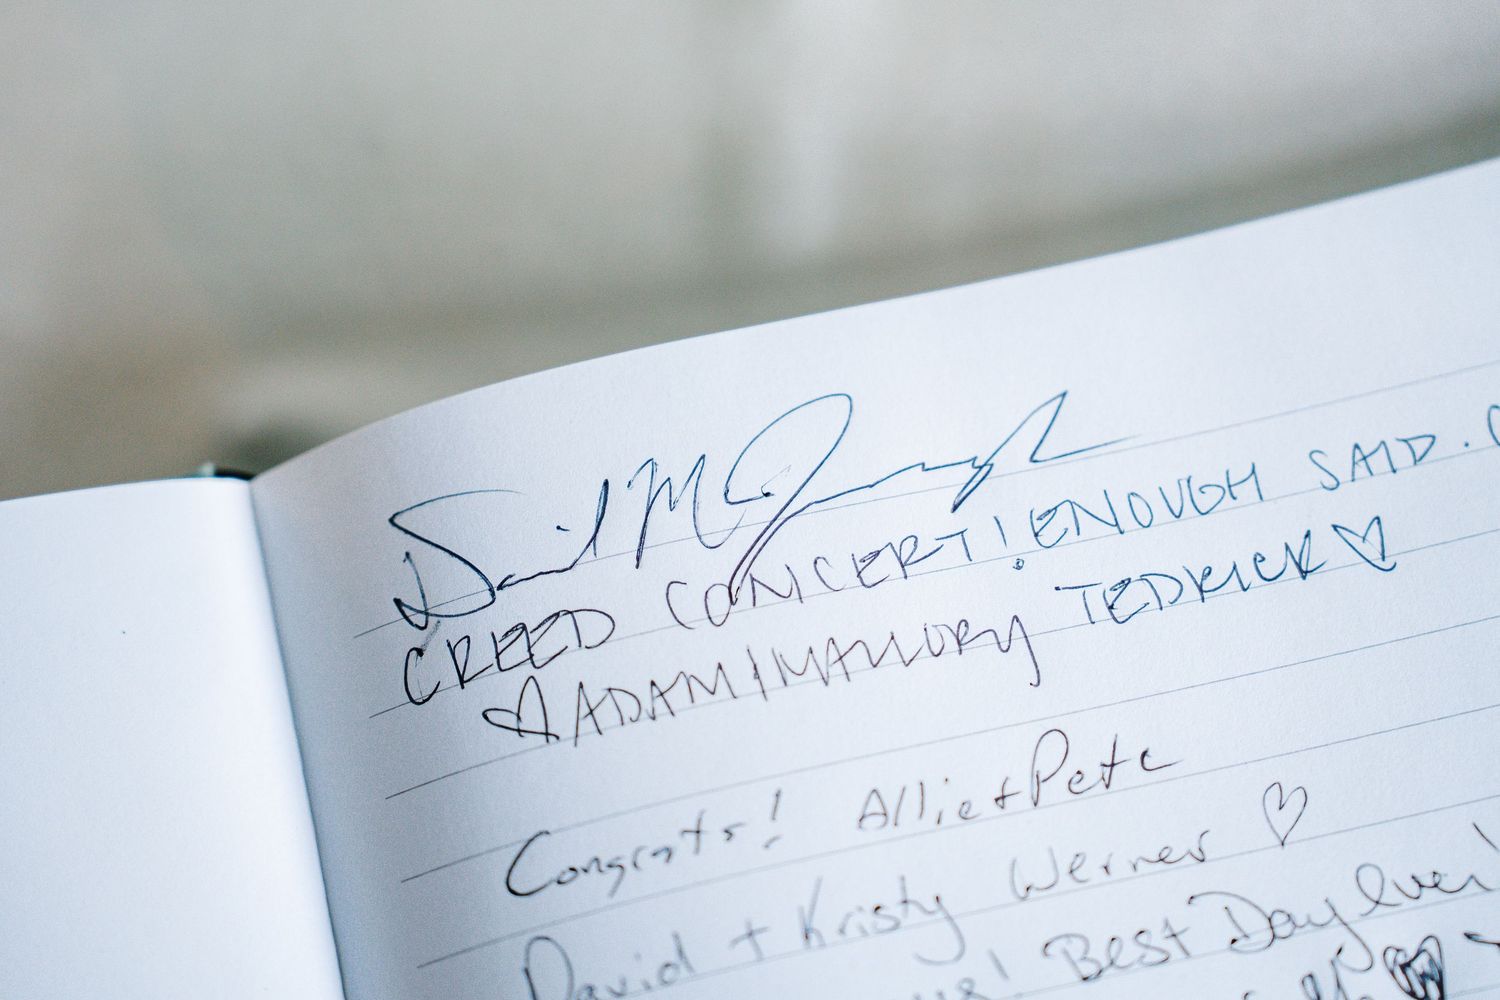 CREED CONCERT! ENOUGH SAID.
♡ ADAM | MALLORY TEDRICK ♡
Congrats! Allie + Pete
David + Kristy Werner ♡
Best Day Ever!